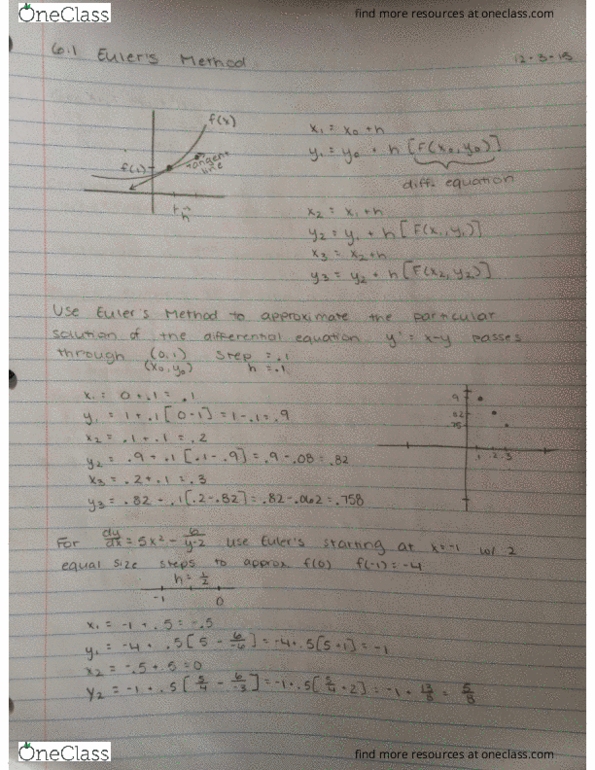 OneClass
find more resources at oneclass.com
6.1 Euler's Method
12-3-15
f(x)
f(x)
tangent
line
h
x₁ = x₀ + h
y₁ = y₀ + h [F(x₀, y₀)]
diff. equation
x₂ = x₁ + h
y₂ = y₁ + h [F(x₁, y₁)]
x₃ = x₂ + h
y₃ = y₂ + h [F(x₂, y₂)]
Use Euler's Method to approximate the particular
solution of the differential equation y' = x-y passes
through (0,1) step = .1
(x₀, y₀) h = .1
x₁ = 0 + .1 = .1
y₁ = 1 + .1 [0-1] = 1 - .1 = .9
x₂ = .1 + .1 = .2
y₂ = .9 + .1 [.1 - .9] = .9 - .08 = .82
x₃ = .2 + .1 = .3
y₃ = .82 + .1 [.2 - .82] = .82 - .062 = .758
.9
.82
.75
.1 .2 .3
For dy/dx = 5x² - 6/y-2 use Euler's starting at x=-1 w/ 2
equal size steps to approx f(0) f(-1) = -4
h = 1/2
-1 0
x₁ = -1 + .5 = -.5
y₁ = -4 + .5 [5 - 6/-6] = -4 + .5 [5+1] = -1
x₂ = -.5 + .5 = 0
y₂ = -1 + .5 [5/4 - 6/-3] = -1 + .5 [5/4 + 2] = -1 + 13/8 = 5/8
OneClass
find more resources at oneclass.com